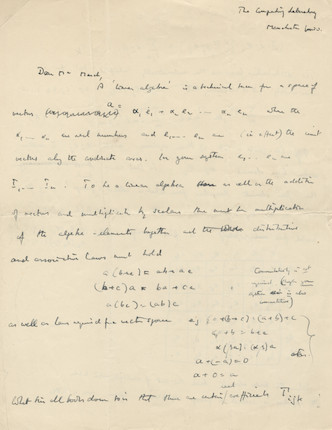 The Computing Laboratory
Manchester Univ.
Dear Mr
A 'linear algebra' is a technical term for a space of
vectors a = α₁e₁ + α₂e₂ ... αₙeₙ where the
α₁... αₙ are real numbers and e₁... eₙ are (in effect) the unit
vectors along the coordinate axes. In your system e₁... eₙ are
I₁... Iₙ. To be a linear algebra as well as the addition
of vectors and multiplication by scalars there must be multiplication
of the algebra-elements together and the distributive
and associative laws must hold
a(b+c) = ab+ac
(b+c)a = ba+ca
a(bc) = (ab)c
Commutativity is not
required (though your
system is in fact
commutative)
as well as laws required for vector space e.g. a+(b+c) = (a+b)+c
c+b = b+c
a+(-a) = 0
a+0 = a
etc.
What this all boils down to is that there are certain coefficients